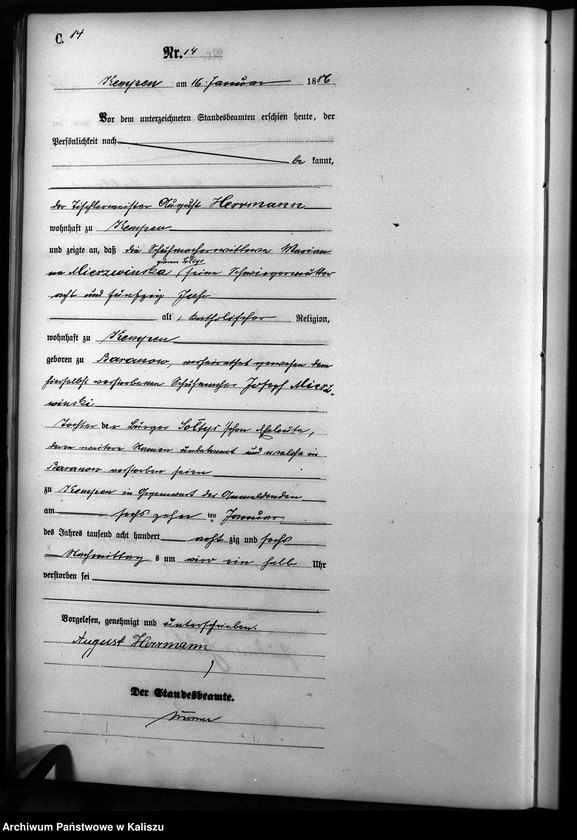 C. 14
Nr. 14
Kempen am 16. Januar 1886
Vor dem unterzeichneten Standesbeamten erschien heute, der
Persönlichkeit nach
be kannt,
der Tischlermeister August Herrmann
wohnhaft zu Kempen
und zeigte an, daß die Schuhmacherwittwe Marian
geborene Soltys
na Mierzwinska, seine Schwiegermutter
acht und fünfzig Jahr
alt, katholischer Religion,
wohnhaft zu Kempen
geboren zu Baranow, verheirathet gewesen dem
hierselbst verstorbenen Schuhmacher Joseph Mierz-
winski
Tochter der Bürger Sołtys'schen Eheleute,
deren weitere Namen unbekannt und welche in
Baranow verstorben seien
zu Kempen in Gegenwart des Anmeldenden
am sechs zehn ten Januar
des Jahres tausend acht hundert acht zig und sechs
Nachmittag s um vier ein halb Uhr
verstorben sei
Vorgelesen, genehmigt und unterschrieben.
August Herrmann
Der Standesbeamte.
Archiwum Państwowe w Kaliszu